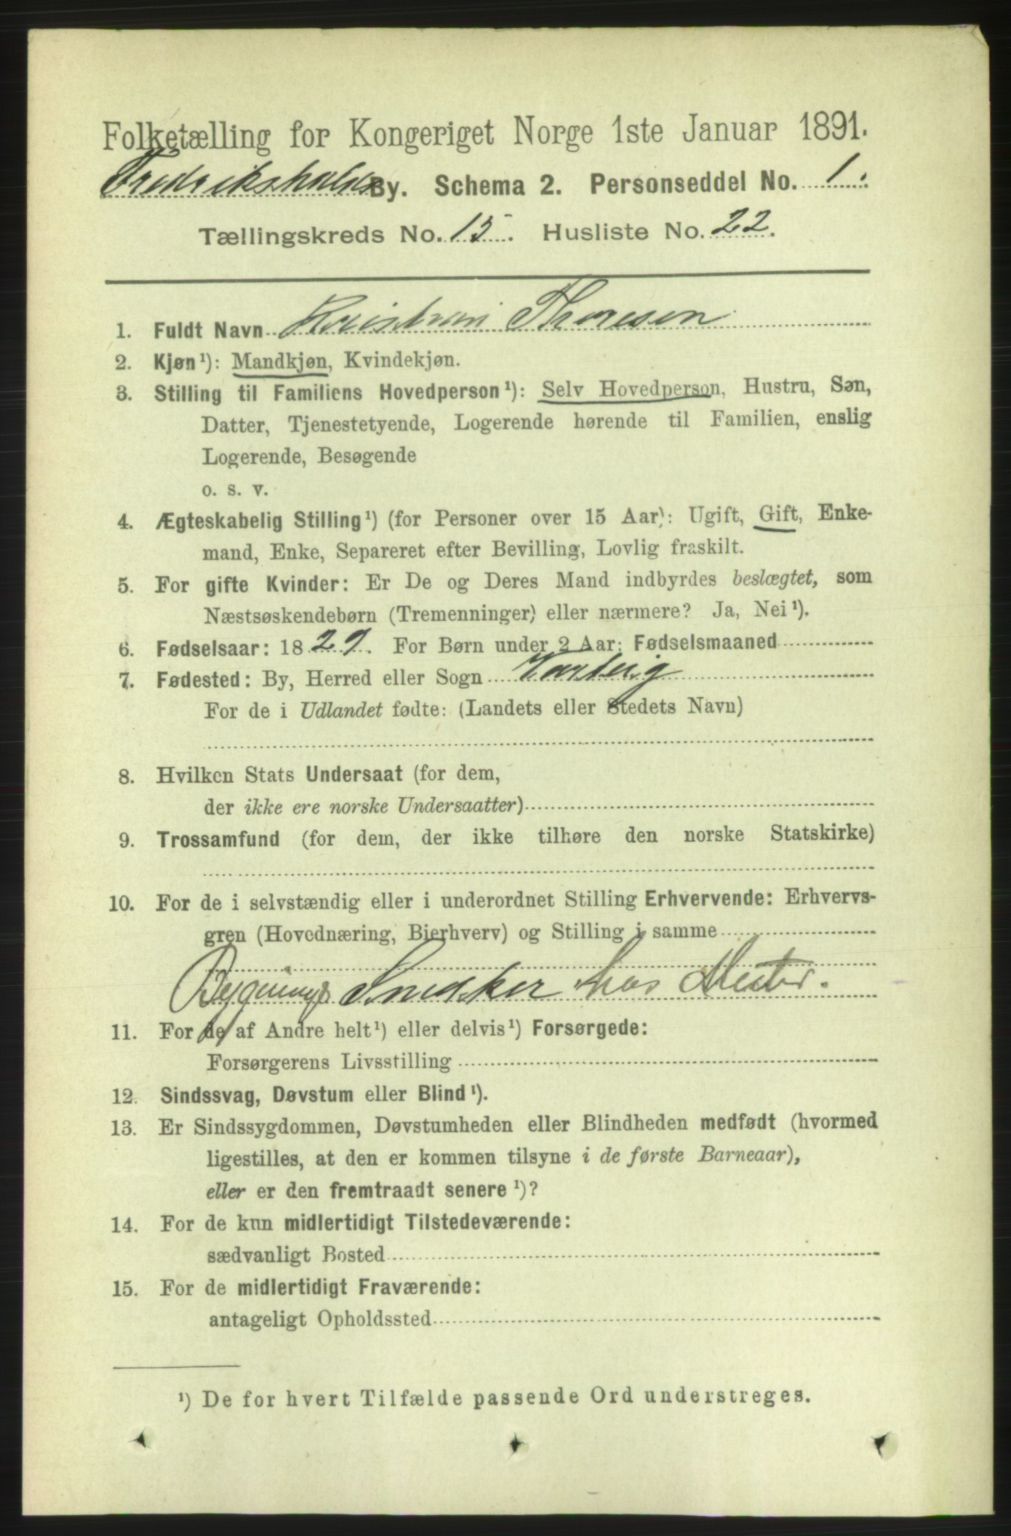 Folketælling for Kongeriget Norge 1ste Januar 1891.
Fredrikshalds By. Schema 2. Personseddel No. 1.
Tællingskreds No. 15. Husliste No. 22.
1. Fuldt Navn Kristian Thoresen
2. Kjøn¹): Mandkjøn, Kvindekjøn.
3. Stilling til Familiens Hovedperson¹): Selv Hovedperson, Hustru, Søn,
Datter, Tjenestetyende, Logerende hørende til Familien, enslig
Logerende, Besøgende
o. s. v.
4. Ægteskabelig Stilling¹) (for Personer over 15 Aar): Ugift, Gift, Enke-
mand, Enke, Separeret efter Bevilling, Lovlig fraskilt.
5. For gifte Kvinder: Er De og Deres Mand indbyrdes beslægtet, som
Næstsøskendebørn (Tremenninger) eller nærmere? Ja, Nei¹).
6. Fødselsaar: 1829. For Børn under 2 Aar: Fødselsmaaned
7. Fødested: By, Herred eller Sogn Varteig
For de i Udlandet fødte: (Landets eller Stedets Navn)
8. Hvilken Stats Undersaat (for dem,
der ikke ere norske Undersaatter)
9. Trossamfund (for dem, der ikke tilhøre den norske Statskirke)
10. For de i selvstændig eller i underordnet Stilling Erhvervende: Erhvervs-
gren (Hovednæring, Bierhverv) og Stilling i samme
Bygnings Snedker hos Mester.
11. For de af Andre helt¹) eller delvis¹) Forsørgede:
Forsørgerens Livsstilling
12. Sindssvag, Døvstum eller Blind¹).
13. Er Sindssygdommen, Døvstumheden eller Blindheden medfødt (hvormed
ligestilles, at den er kommen tilsyne i de første Barneaar),
eller er den fremtraadt senere¹)?
14. For de kun midlertidigt Tilstedeværende:
sædvanligt Bosted
15. For de midlertidigt Fraværende:
antageligt Opholdssted
¹) De for hvert Tilfælde passende Ord understreges.